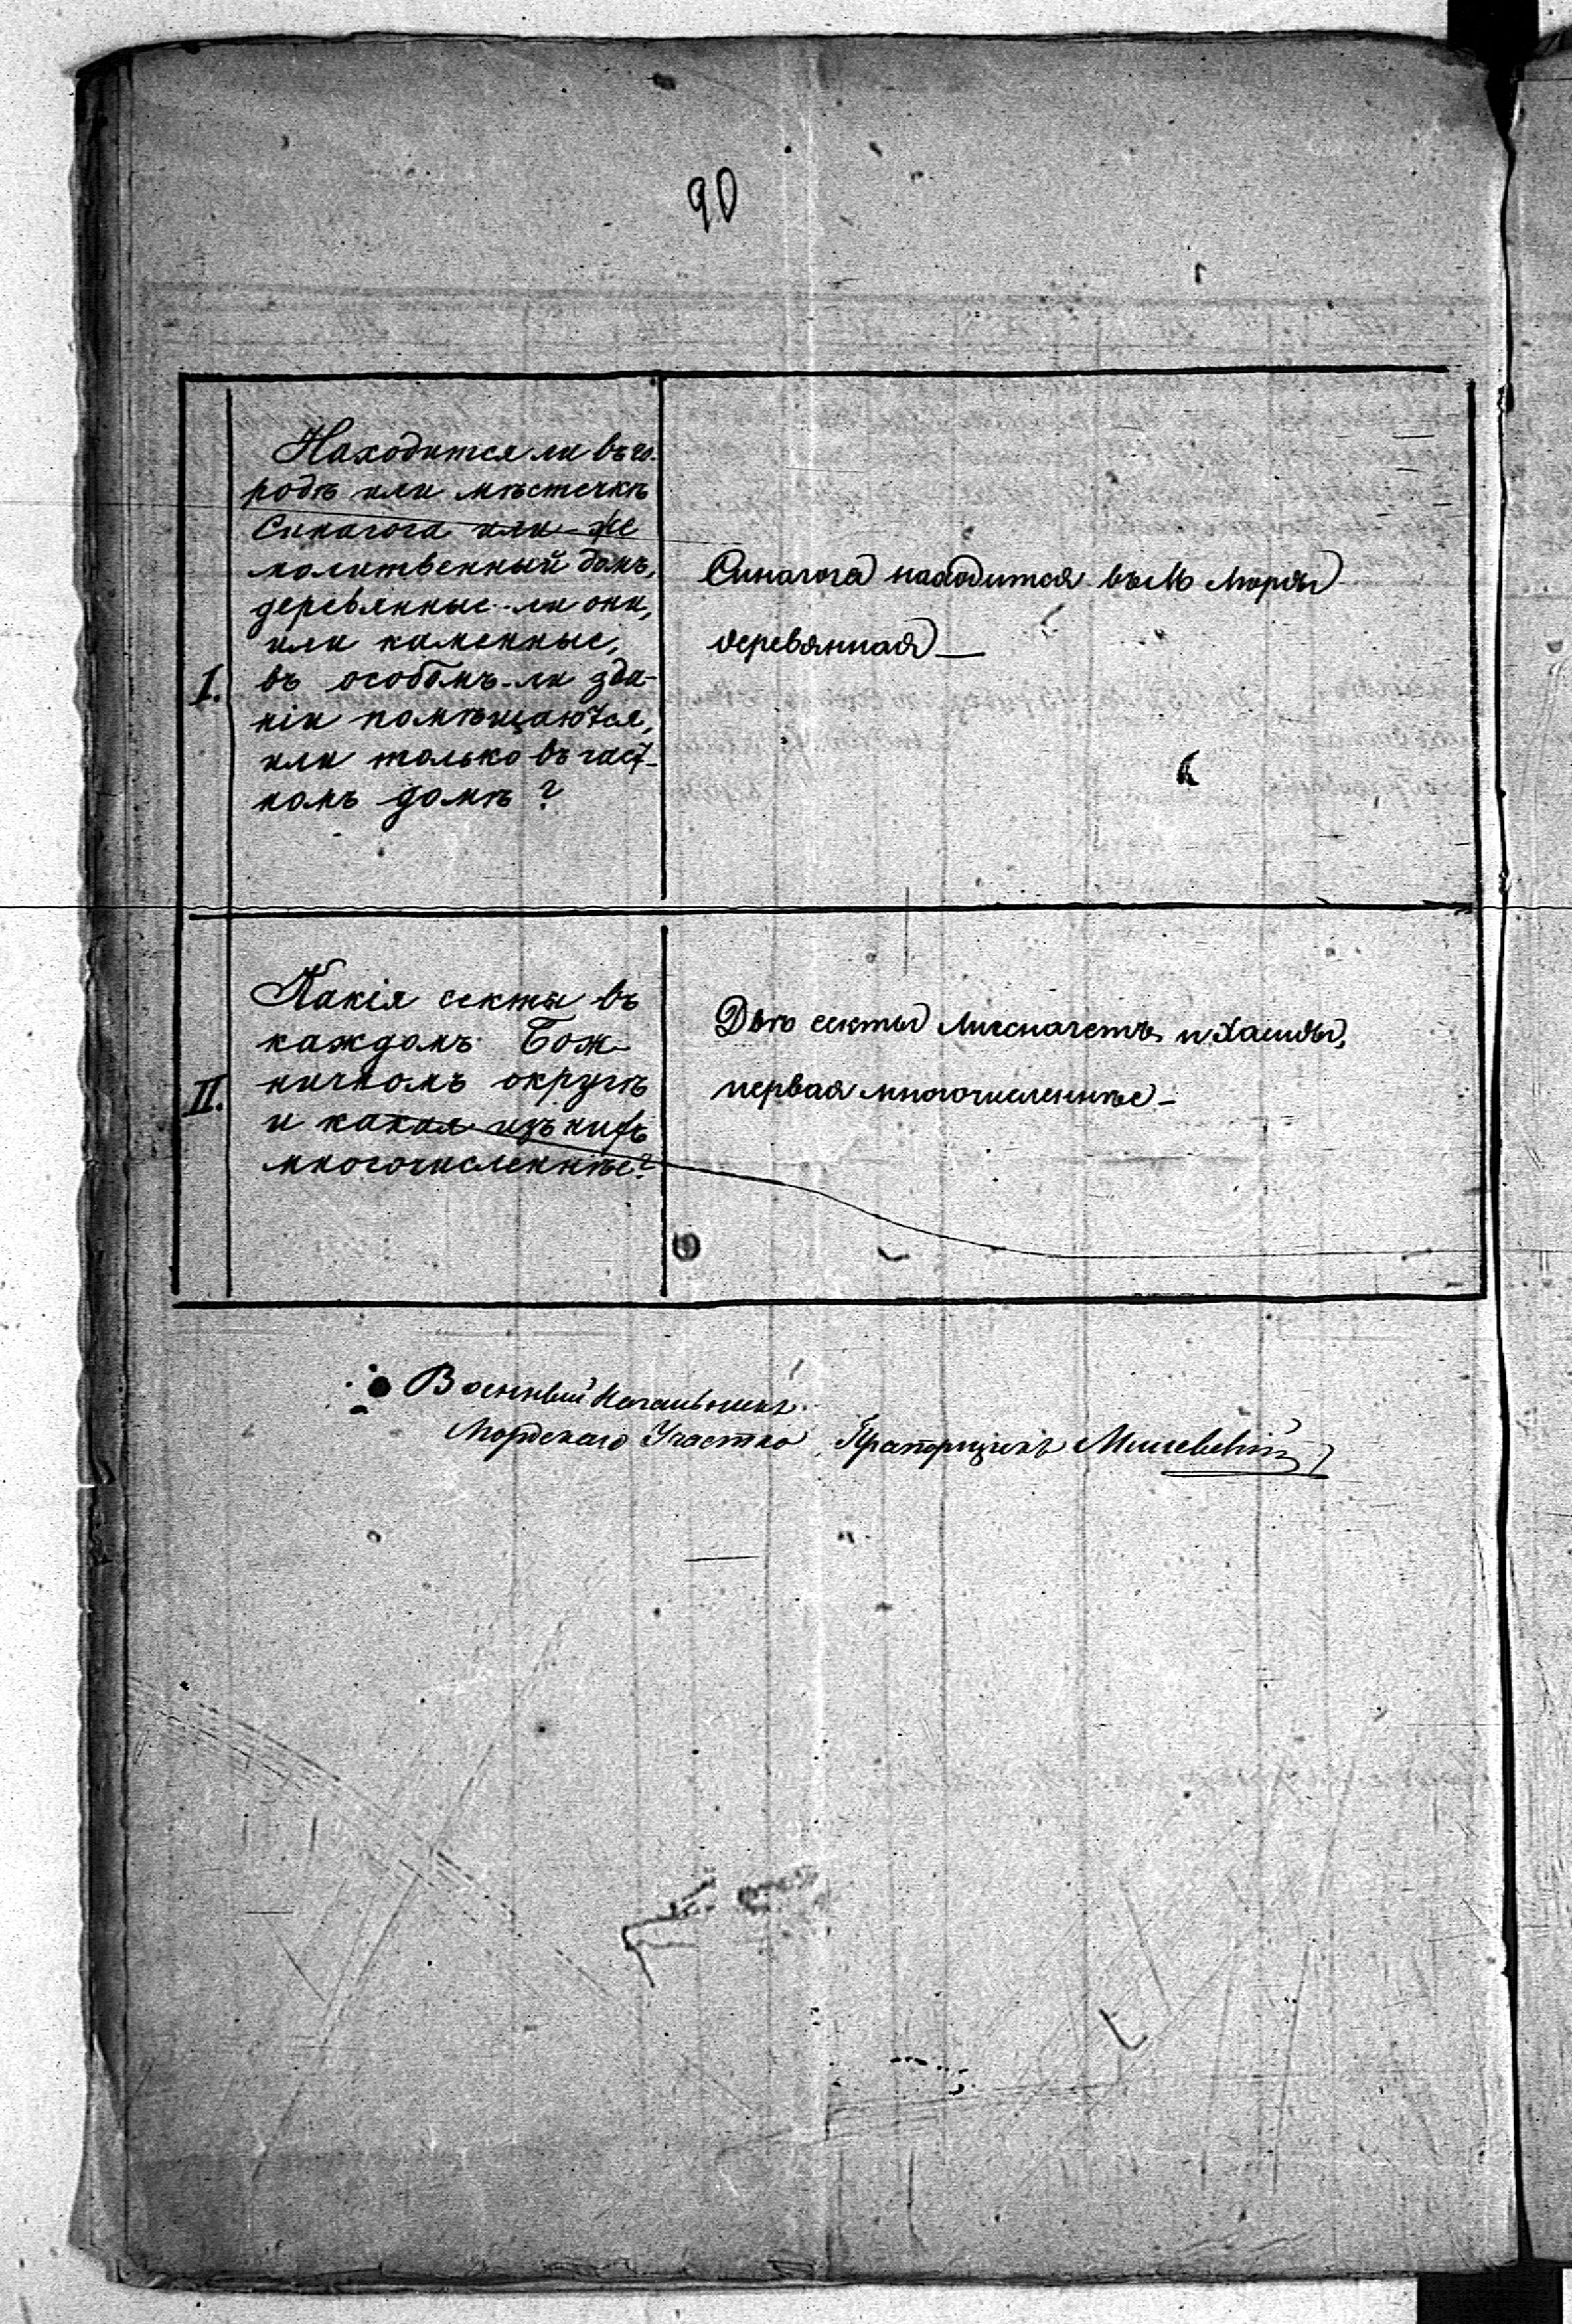 90
I.
Находится ли въ го-
родѣ или мѣстечкѣ
Синагога или-же
молитвенный домъ,
деревянные-ли они,
или каменные,
въ особомъ-ли зда-
ніи помѣщаются,
или только въ част-
номъ домѣ?
Синагога находится въ М Морды
деревянная —
II.
Какія секты въ
каждомъ Бож-
ничномъ округѣ
и какая изъ нихъ
многочисленнѣе?
Двѣ секты Мисначетъ и Хасиды,
первая многочисленнѣе —
Военный Начальникъ
Мордскаго Участка Прапорщикъ